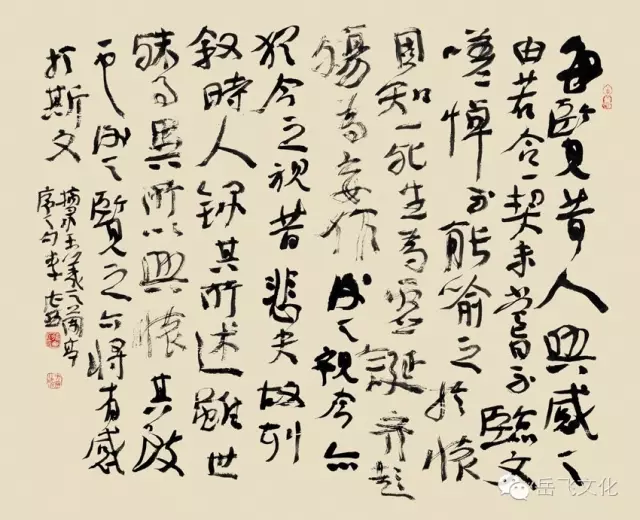 每覽昔人興感之
由若合一契未嘗不臨文
嗟悼不能喻之於懷
固知一死生為虛誕齊彭
殤為妄作後之視今亦
猶今之視昔悲夫故列
敘時人錄其所述雖世
殊事異所以興懷其致
一也後之覽之亦將有感
於斯文
摘王羲之蘭亭
序句李
岳飞文化